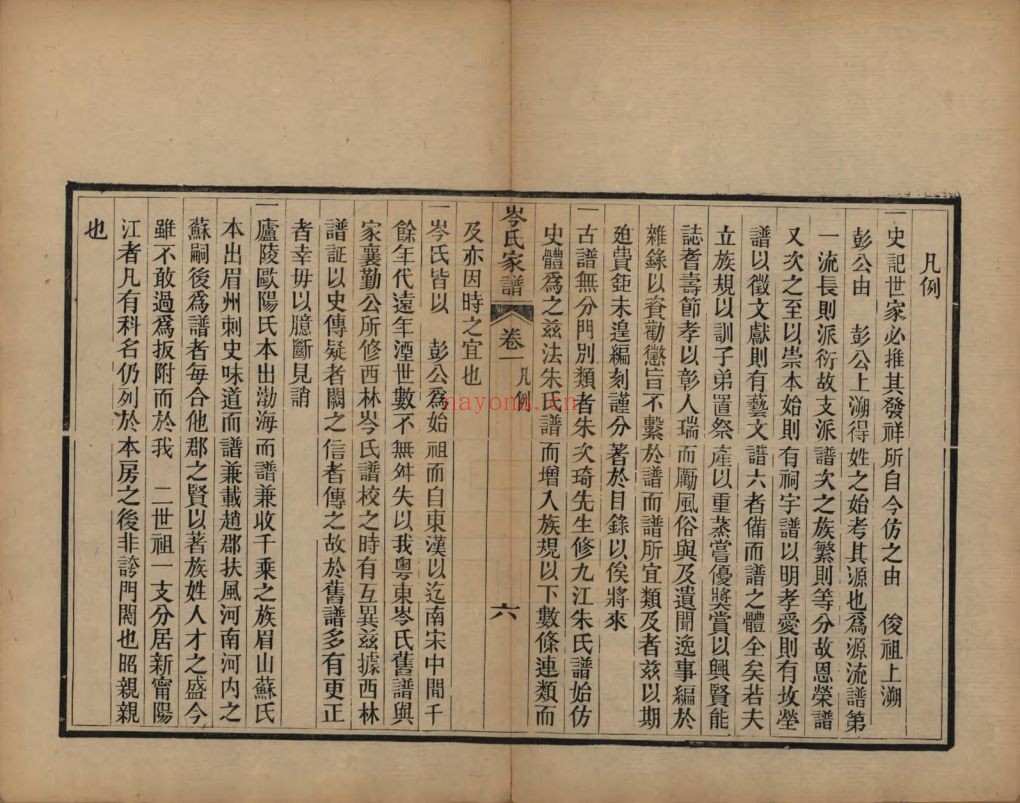 凡例
一史記世家必推其發祥所自今仿之由　俊祖上溯
彭公由　彭公上溯得姓之始考其源也爲源流譜第
一流長則派衍故支派譜次之族繁則等分故恩榮譜
又次之至以崇本始則有祠宇譜以明孝愛則有坟塋
譜以徵文獻則有藝文譜六者備而譜之體全矣若夫
立族規以訓子弟置祭產以重蒸嘗優獎賞以興賢能
誌耆壽節孝以彰人瑞而厲風俗與及遺聞逸事編於
雜錄以資勸懲旨不繫於譜而譜所宜類及者兹以期
廹費鉅未遑編刻謹分著於目錄以俟將來
一古譜無分門別類者朱次琦先生修九江朱氏譜始仿
史體爲之兹法朱氏譜而增入族規以下數條連類而
岑氏家譜　卷一　凡例　六
及亦因時之宜也
一岑氏皆以　彭公爲始祖而自東漢以迄南宋中間千
餘年代遠年湮世數不無舛失以我粵東岑氏舊譜與
家襄勤公所修西林岑氏譜校之時有互異兹據西林
譜証以史傳疑者闕之信者傳之故於舊譜多有更正
者幸毋以臆斷見誚
一廬陵歐陽氏本出渤海而譜兼收千乘之族眉山蘇氏
本出眉州刺史味道而譜兼載趙郡扶風河南河內之
蘇嗣後爲譜者每合他郡之賢以著族姓人才之盛今
雖不敢過爲扳附而於我　二世祖一支分居新甯陽
江者凡有科名仍列於本房之後非誇門閥也昭親親
也
nayoma.cn